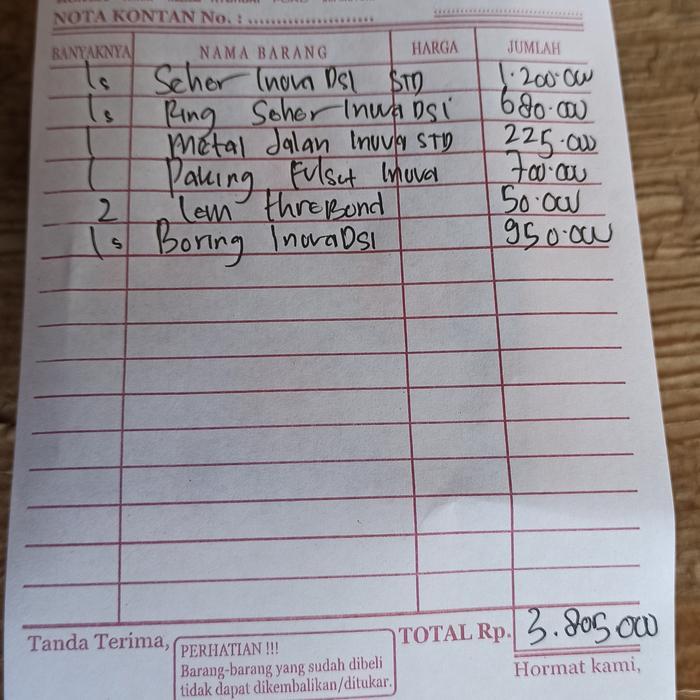 NOTA KONTAN No. :
BANYAKNYA NAMA BARANG HARGA JUMLAH
1s Seher Inova DSI STD 1.200.000
1s Ring Seher Inova DSi 680.000
1 Metal Jalan Inova STD 225.000
1 Paking Fulset Inova 700.000
2 lem threBond 50.000
1s Boring Inova DSI 950.000
Tanda Terima, TOTAL Rp. 3.805.000
PERHATIAN !!!
Barang-barang yang sudah dibeli
tidak dapat dikembalikan/ditukar.
Hormat kami,